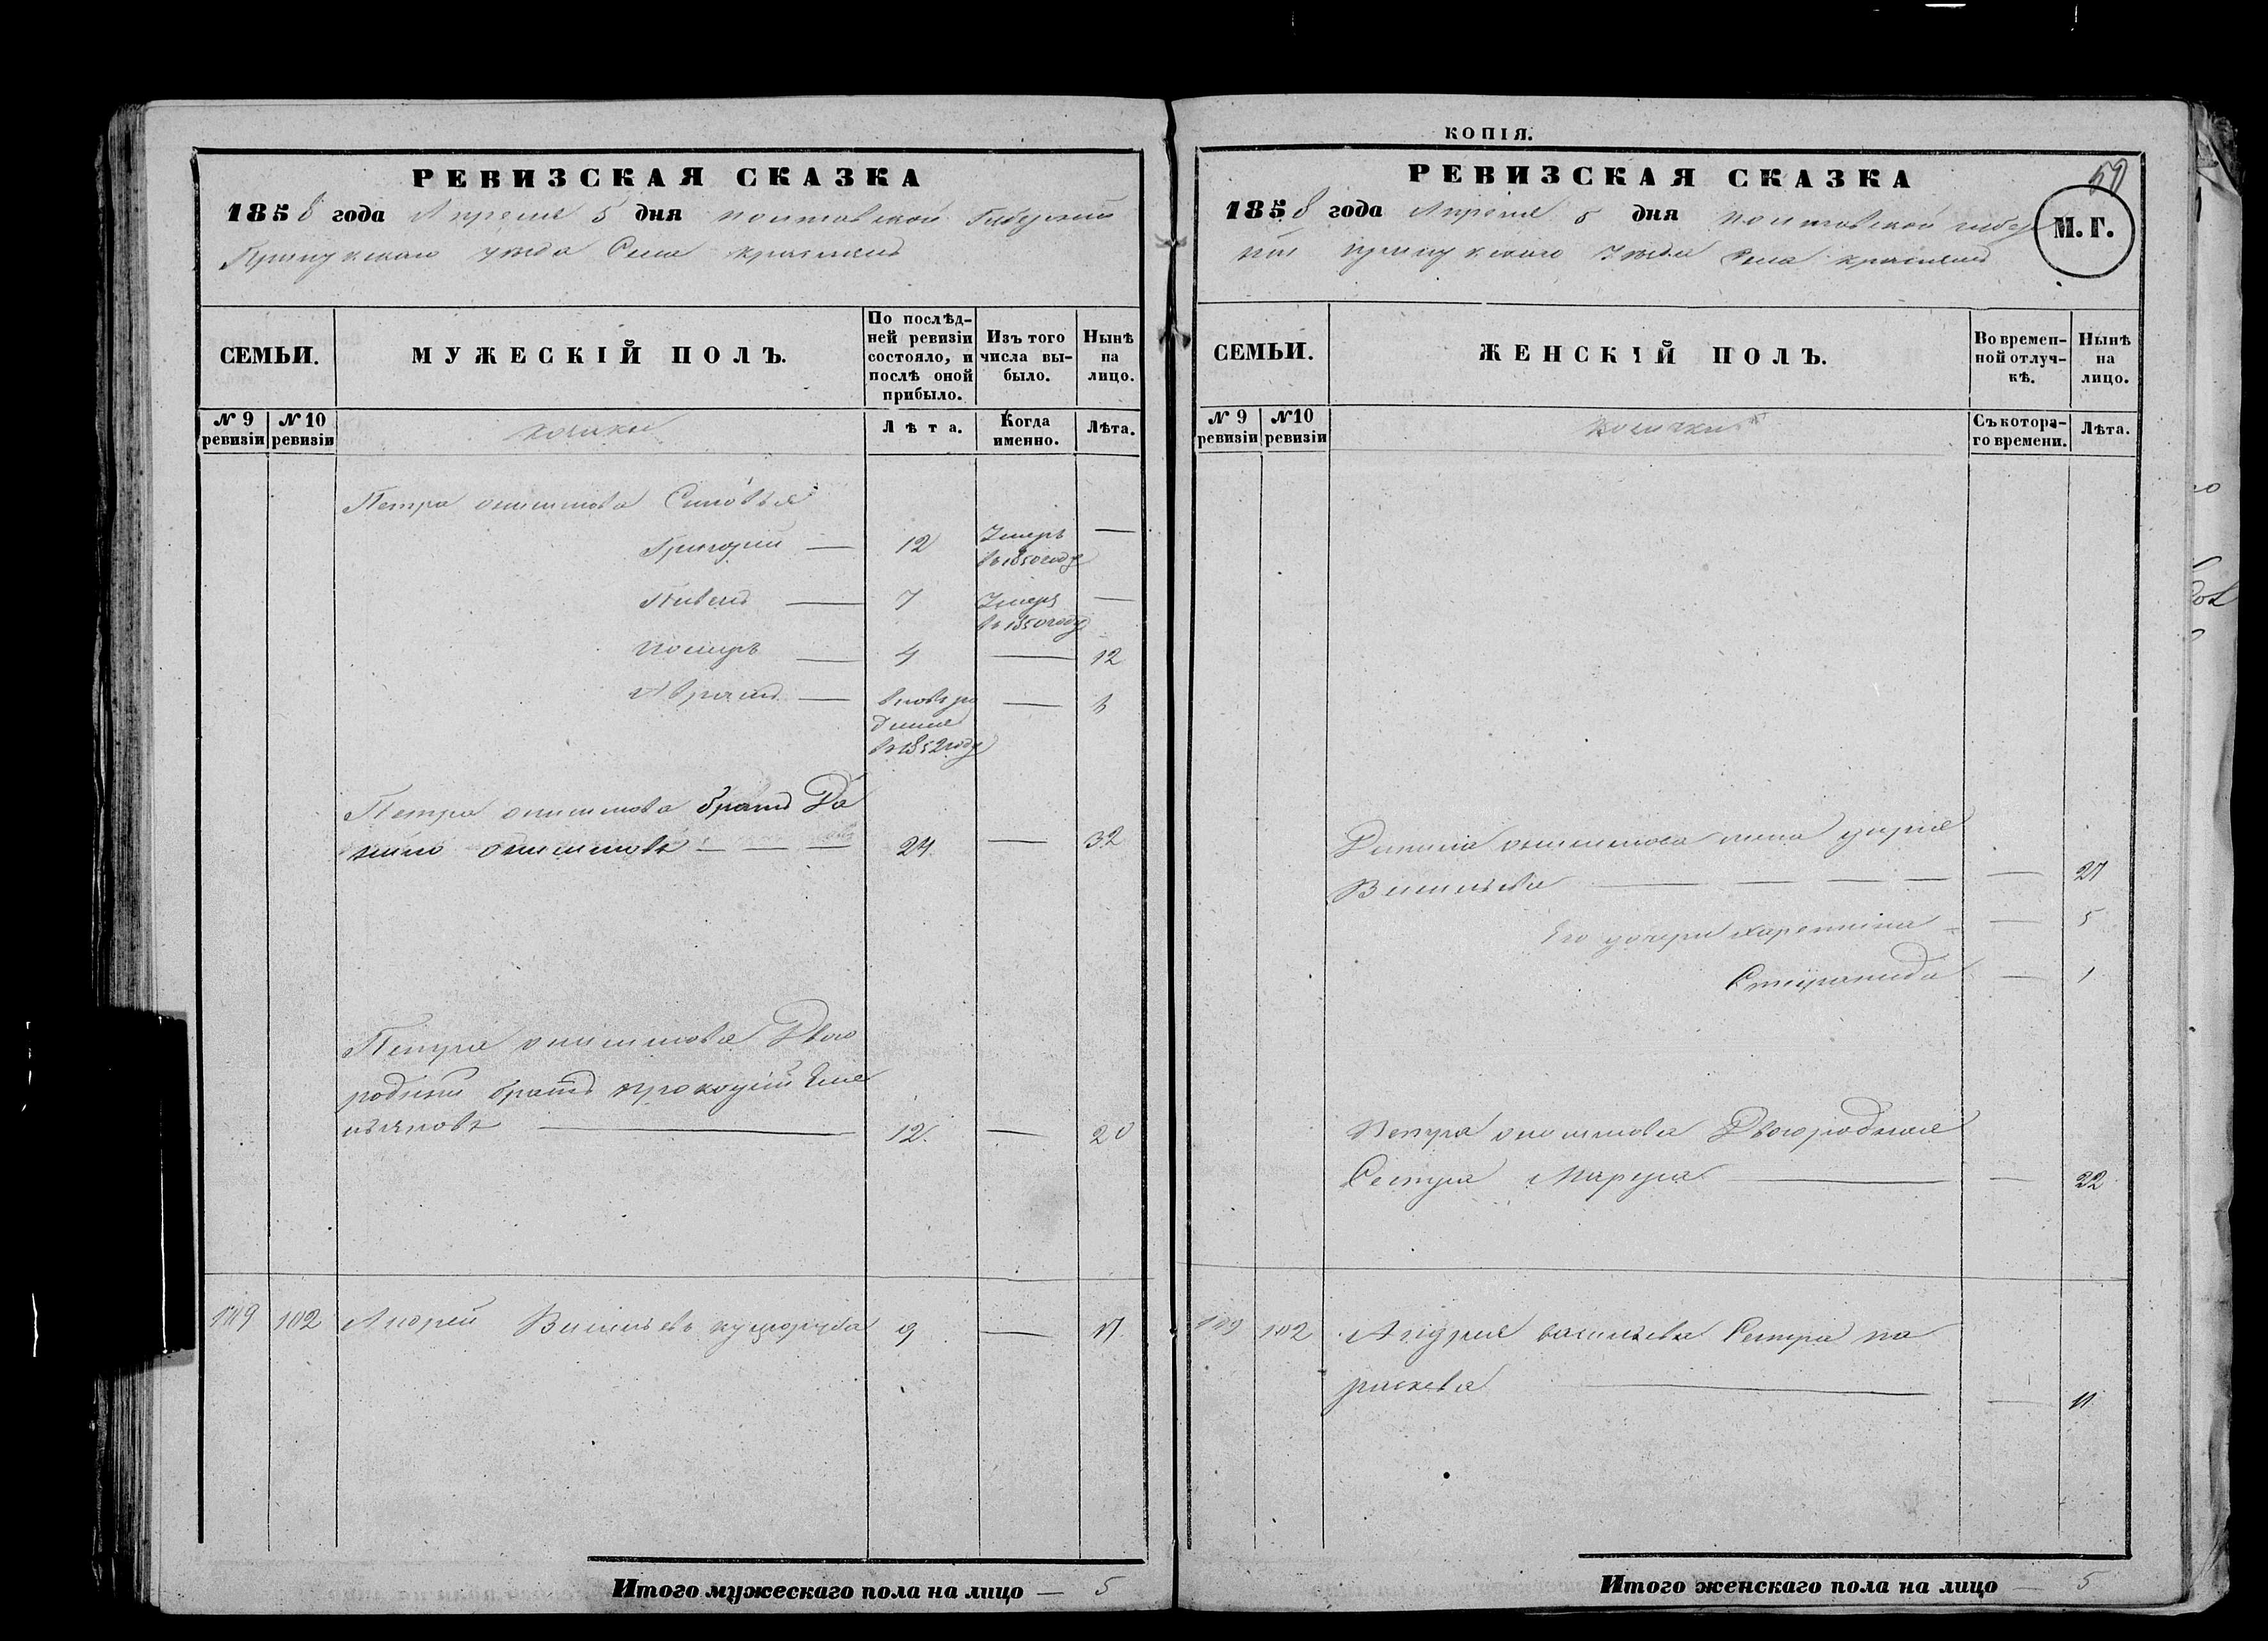 РЕВИЗСКАЯ СКАЗКА
1858 года Апреля 5 дня Полтавской Губерніи
Прилукскаго уезда Села
СЕМЬИ.
МУЖЕСКІЙ ПОЛЪ.
По послѣд-
ней ревизіи
состояло, и
послѣ оной
прибыло.
Изъ того
числа вы-
было.
Нынѣ
на
лицо.
№ 9
ревизіи
№ 10
ревизіи
козаки
Лѣта.
Когда
именно.
Лѣта.
Петра онисимова Синовья
Григорий — 12 Умеръ —
въ 1850 году
Павелъ — 7 Умеръ —
въ 1850 году
4 — 12
Аврамъ — вновь ро — 6
въ 1852 году
Петра онисимова братъ Да
нило онисимовъ — — — 24 — 32
Петра онисимова Двою
родний братъ прокофий Еме
льяновъ — 12 — 20
109 102 Андрей Васильевъ 9 — 17
Итого мужескаго пола на лицо — 5
КОПІЯ.
РЕВИЗСКАЯ СКАЗКА
59
М. Г.
1858 года Апреля 5 дня Полтавской губер
ніи прилукскаго Уезда Села
СЕМЬИ.
ЖЕНСКІЙ ПОЛЪ.
Во времен-
ной отлуч-
кѣ.
Нынѣ
на
лицо.
№ 9
ревизіи
№ 10
ревизіи
Съ котора-
го времени.
Лѣта.
Данила онисимова жена
Васильева — — — — — 27
Его дочери Харетина — 5
Степанида — 1
Петра онисимова Двоюродная
Сестра Марфа — — 22
109 102 Андрея васильева Сестра па
раскева — — 11
Итого женскаго пола на лицо — 5